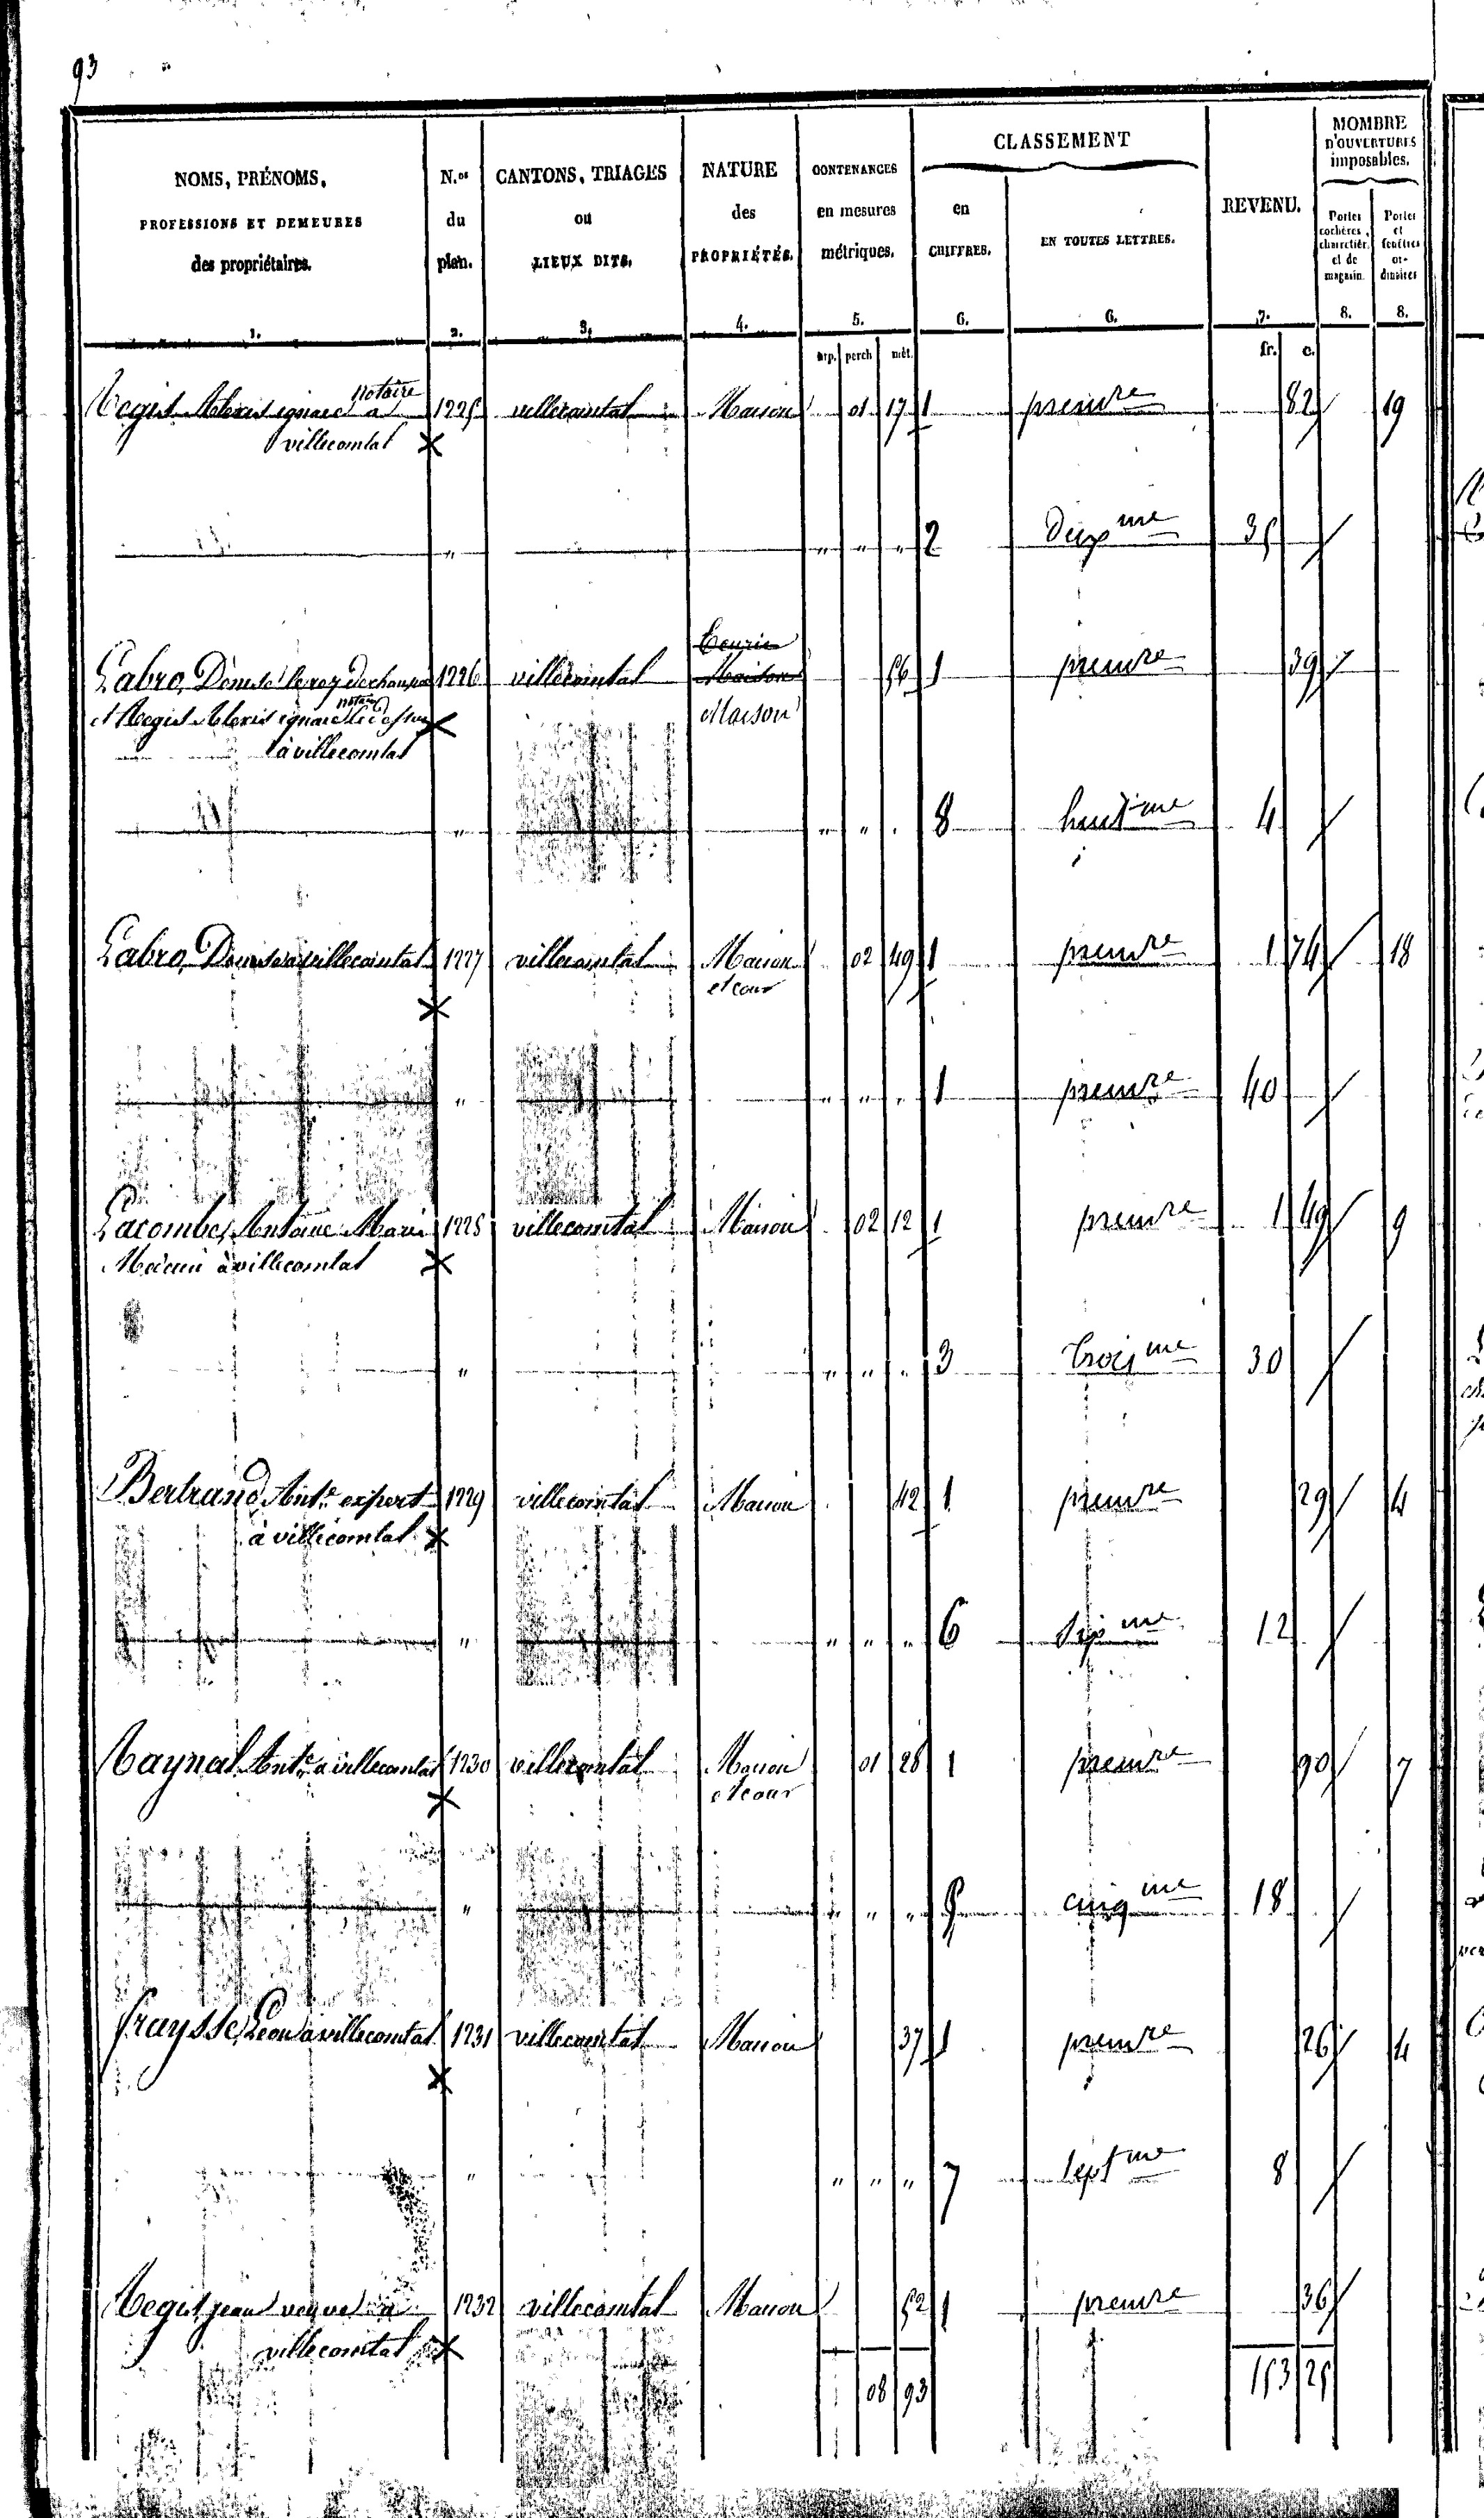 93
NOMS, PRÉNOMS, PROFESSIONS ET DEMEURES des propriétaires. 1.
N.os du plan. 2.
CANTONS, TRIAGES ou LIEUX DITS. 3.
NATURE des PROPRIÉTÉS. 4.
CONTENANCES en mesures métriques. 5.
CLASSEMENT
en CHIFFRES. 6.
EN TOUTES LETTRES. 6.
REVENU. 7.
MOMBRE D'OUVERTURES imposables.
Portes cochères, charretièr. et de magasin. 8.
Portes et fenêtres or- dinaires 8.
arp. perch mèt. fr. c.
notaire
Regis Alexis ignace à 1225 villecomtal Maison 01 17 1 premre 82 19
villecomtal X
" " " " 2 Deuxme 35
Ecurie
Labro, Denis 1226 villecomtal Maison 56 1 premre 39
notaire
et Regis Alexis ignace X Maison
à villecomtal
" " " 8 huitme 4
Labro, Denis à villecomtal 1227 villecomtal Maison 02 49 1 premre 1 74 18
X et cour
" " " " 1 premre 40
Lacombe, Antoine Marie 1228 villecomtal Maison 02 12 1 premre 1 49 9
Médecin à villecomtal X
" " " " 3 troisme 30
Bertrand Ante expert 1229 villecomtal Maison 42 1 premre 29 4
à villecomtal X
" " " " 6 sixme 12
Raynal Ante à villecomtal 1230 villecomtal Maison 01 28 1 premre 90 7
X et cour
" " " " 5 cinqme 18
fraysse, Léon à villecomtal 1231 villecomtal Maison 37 1 premre 26 4
X
" " " " 7 septme 8
Regis jean veuve à 1232 villecomtal Maison 52 1 premre 36
villecomtal X
08 93 153 25